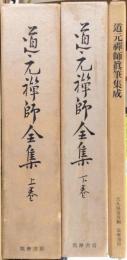 道元禅師全集
上巻
筑摩書房
道元禅師全集
下巻
筑摩書房
道元禪師眞筆集成
筑摩書房